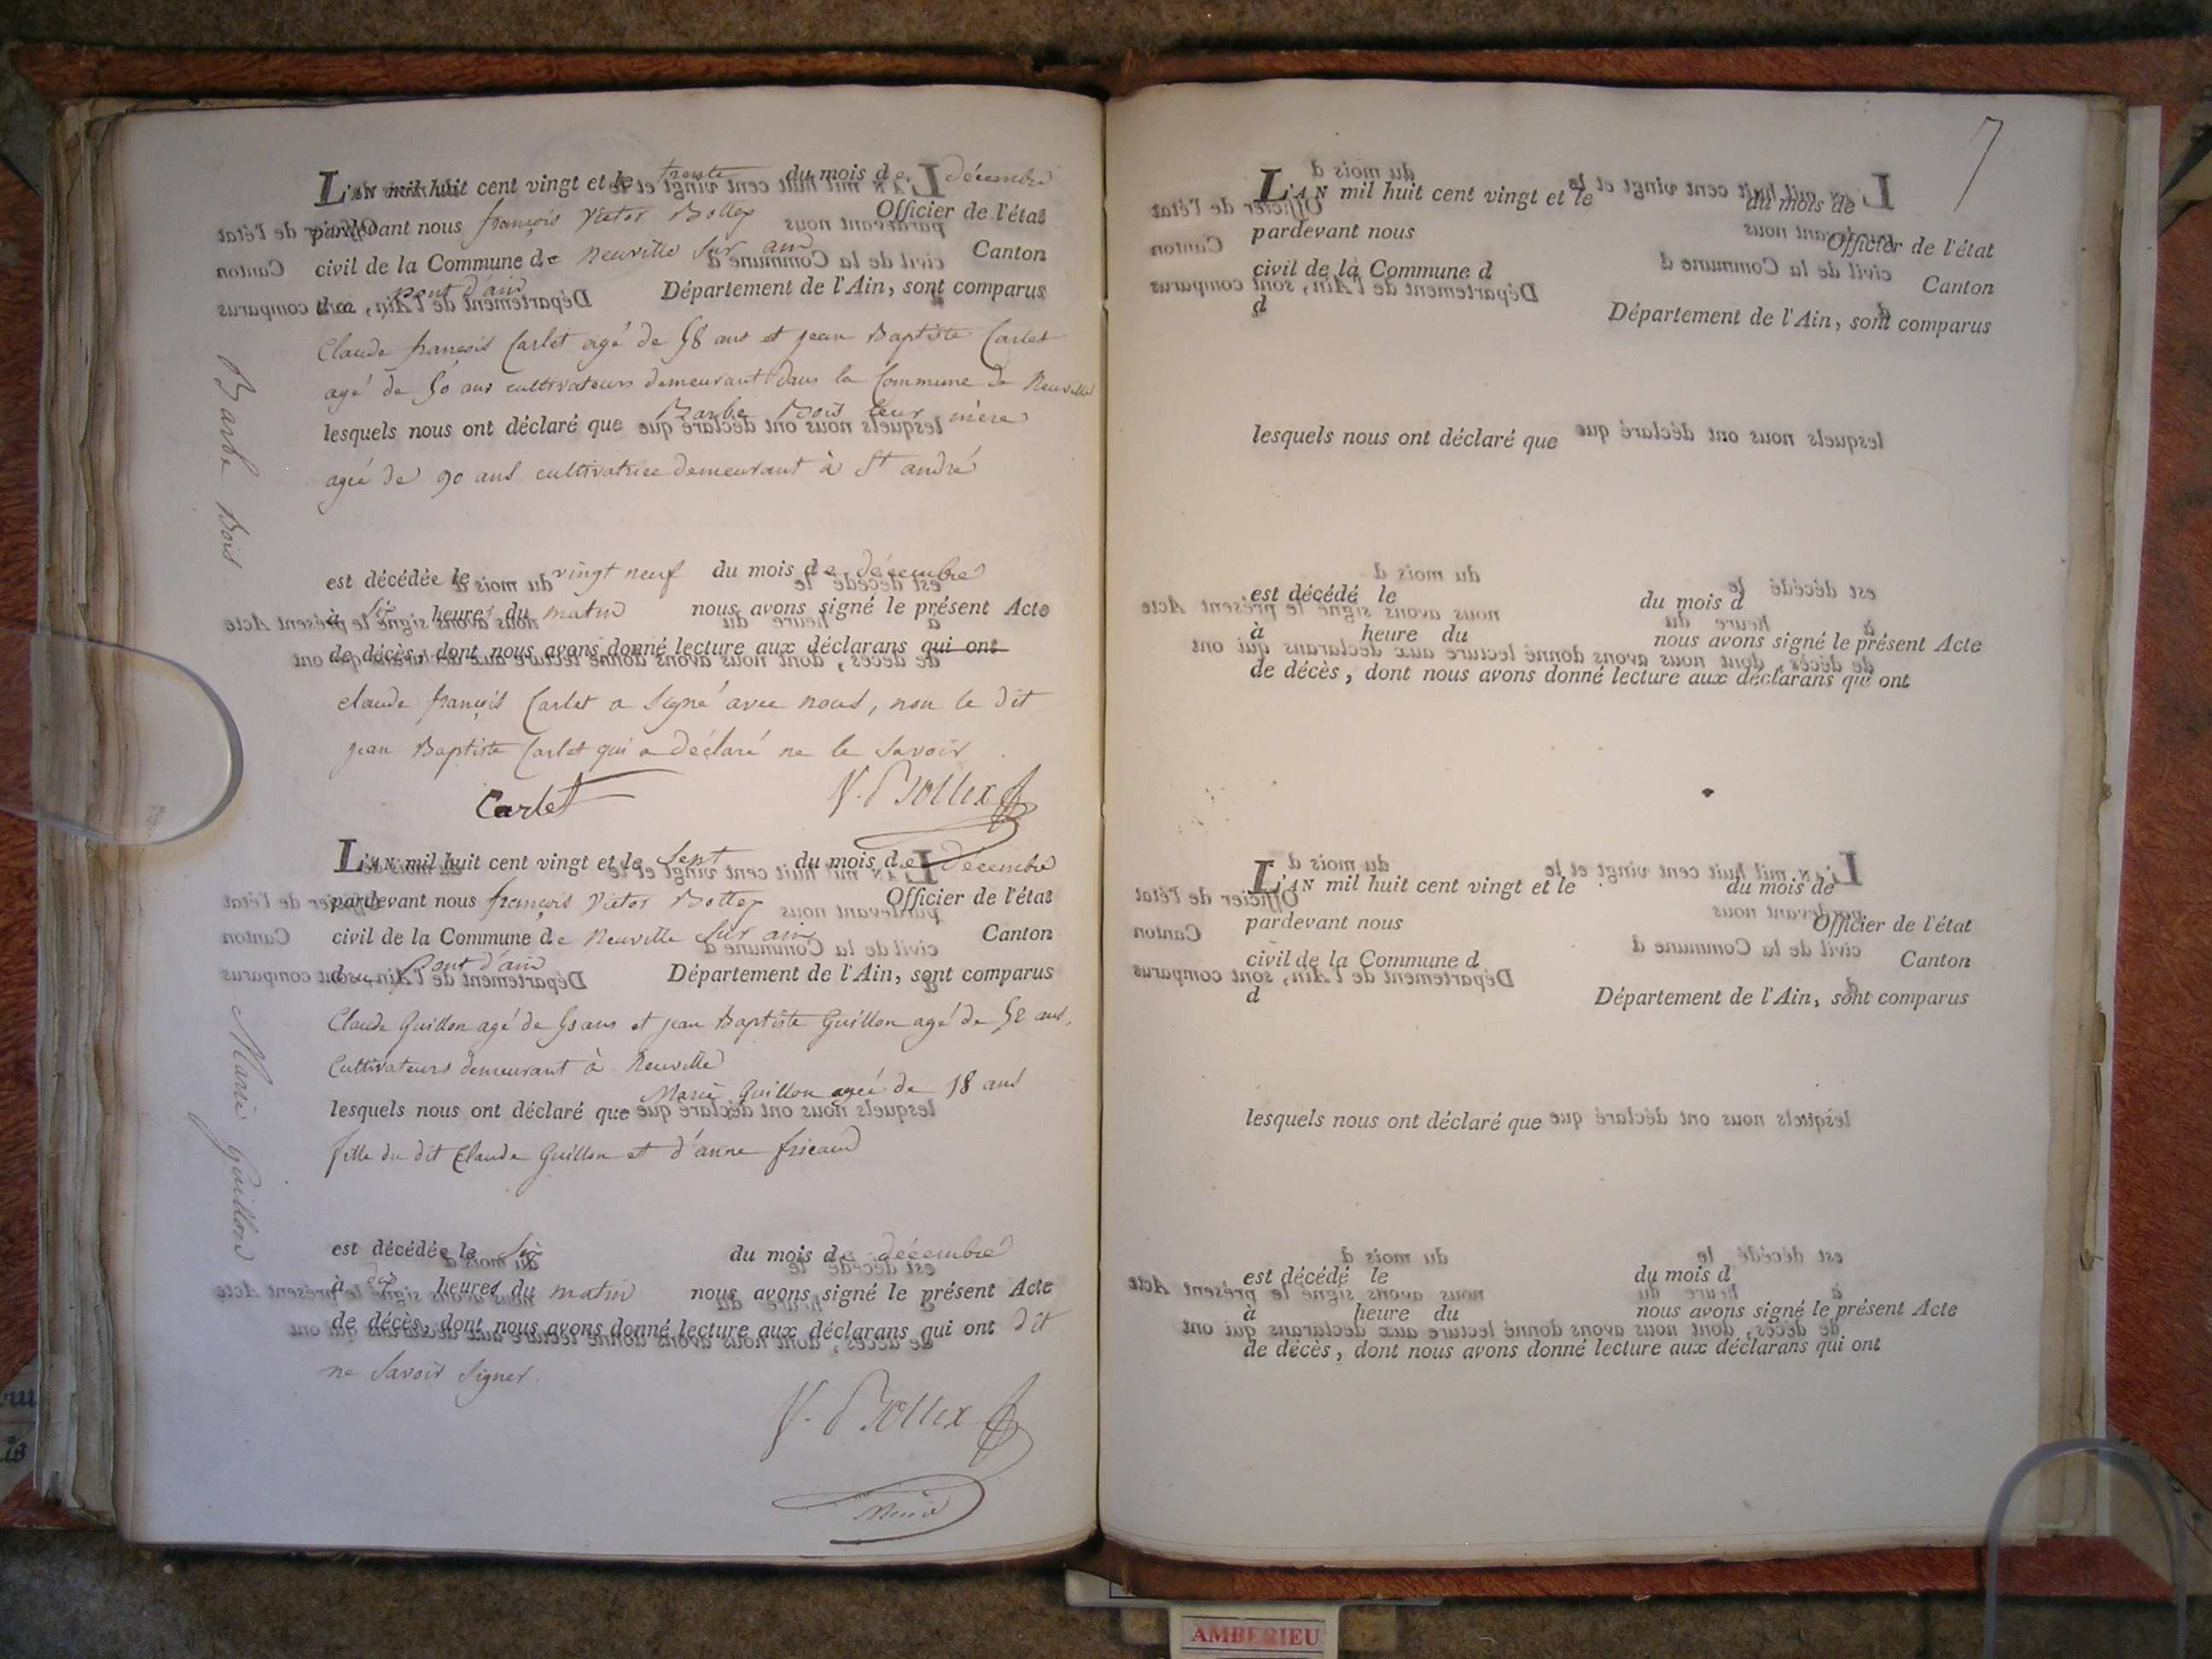 L'AN mil huit cent vingt et le trente du mois de décembre
pardevant nous françois Victor Bottex Officier de l'état
civil de la Commune de Neuville sur ain Canton
de pont d'ain Département de l'Ain, sont comparus
Claude françois Carlet agé de 58 ans et jean Baptiste Carlet
agé de 50 ans cultivateurs demeurant dans la Commune de Neuville
lesquels nous ont déclaré que Barbe Bois leur mère
agée de 90 ans cultivatrice demeurant à St andré
est décédée le vingt neuf du mois de décembre
à six heures du matin nous avons signé le présent Acte
de décès, dont nous avons donné lecture aux déclarans qui ont
claude françois Carlet a signé avec nous, non le dit
jean Baptiste Carlet qui a déclaré ne le savoir
Carlet V. Bottex
Barbe Bois
L'AN mil huit cent vingt et le sept du mois de décembre
pardevant nous françois Victor Bottex Officier de l'état
civil de la Commune de Neuville sur ain Canton
de Pont d'ain Département de l'Ain, sont comparus
Claude Guillon agé de ans et jean Baptiste Guillon agé de 52 ans,
Cultivateurs demeurant à Neuville
lesquels nous ont déclaré que Marie Guillon agée de 18 ans
fille du dit Claude Guillon et d'anne fricaud
est décédée le six du mois de décembre
à dix heures du matin nous avons signé le présent Acte
de décès, dont nous avons donné lecture aux déclarans qui ont dit
ne savoir signer.
V. Bottex
Marie Guillon
7
L'AN mil huit cent vingt et le du mois de
pardevant nous Officier de l'état
civil de la Commune d Canton
d Département de l'Ain, sont comparus
lesquels nous ont déclaré que
est décédé le du mois d
à heure du nous avons signé le présent Acte
de décès, dont nous avons donné lecture aux déclarans qui ont
L'AN mil huit cent vingt et le du mois de
pardevant nous Officier de l'état
civil de la Commune d Canton
d Département de l'Ain, sont comparus
lesquels nous ont déclaré que
est décédé le du mois d
à heure du nous avons signé le présent Acte
de décès, dont nous avons donné lecture aux déclarans qui ont
AMBERIEU